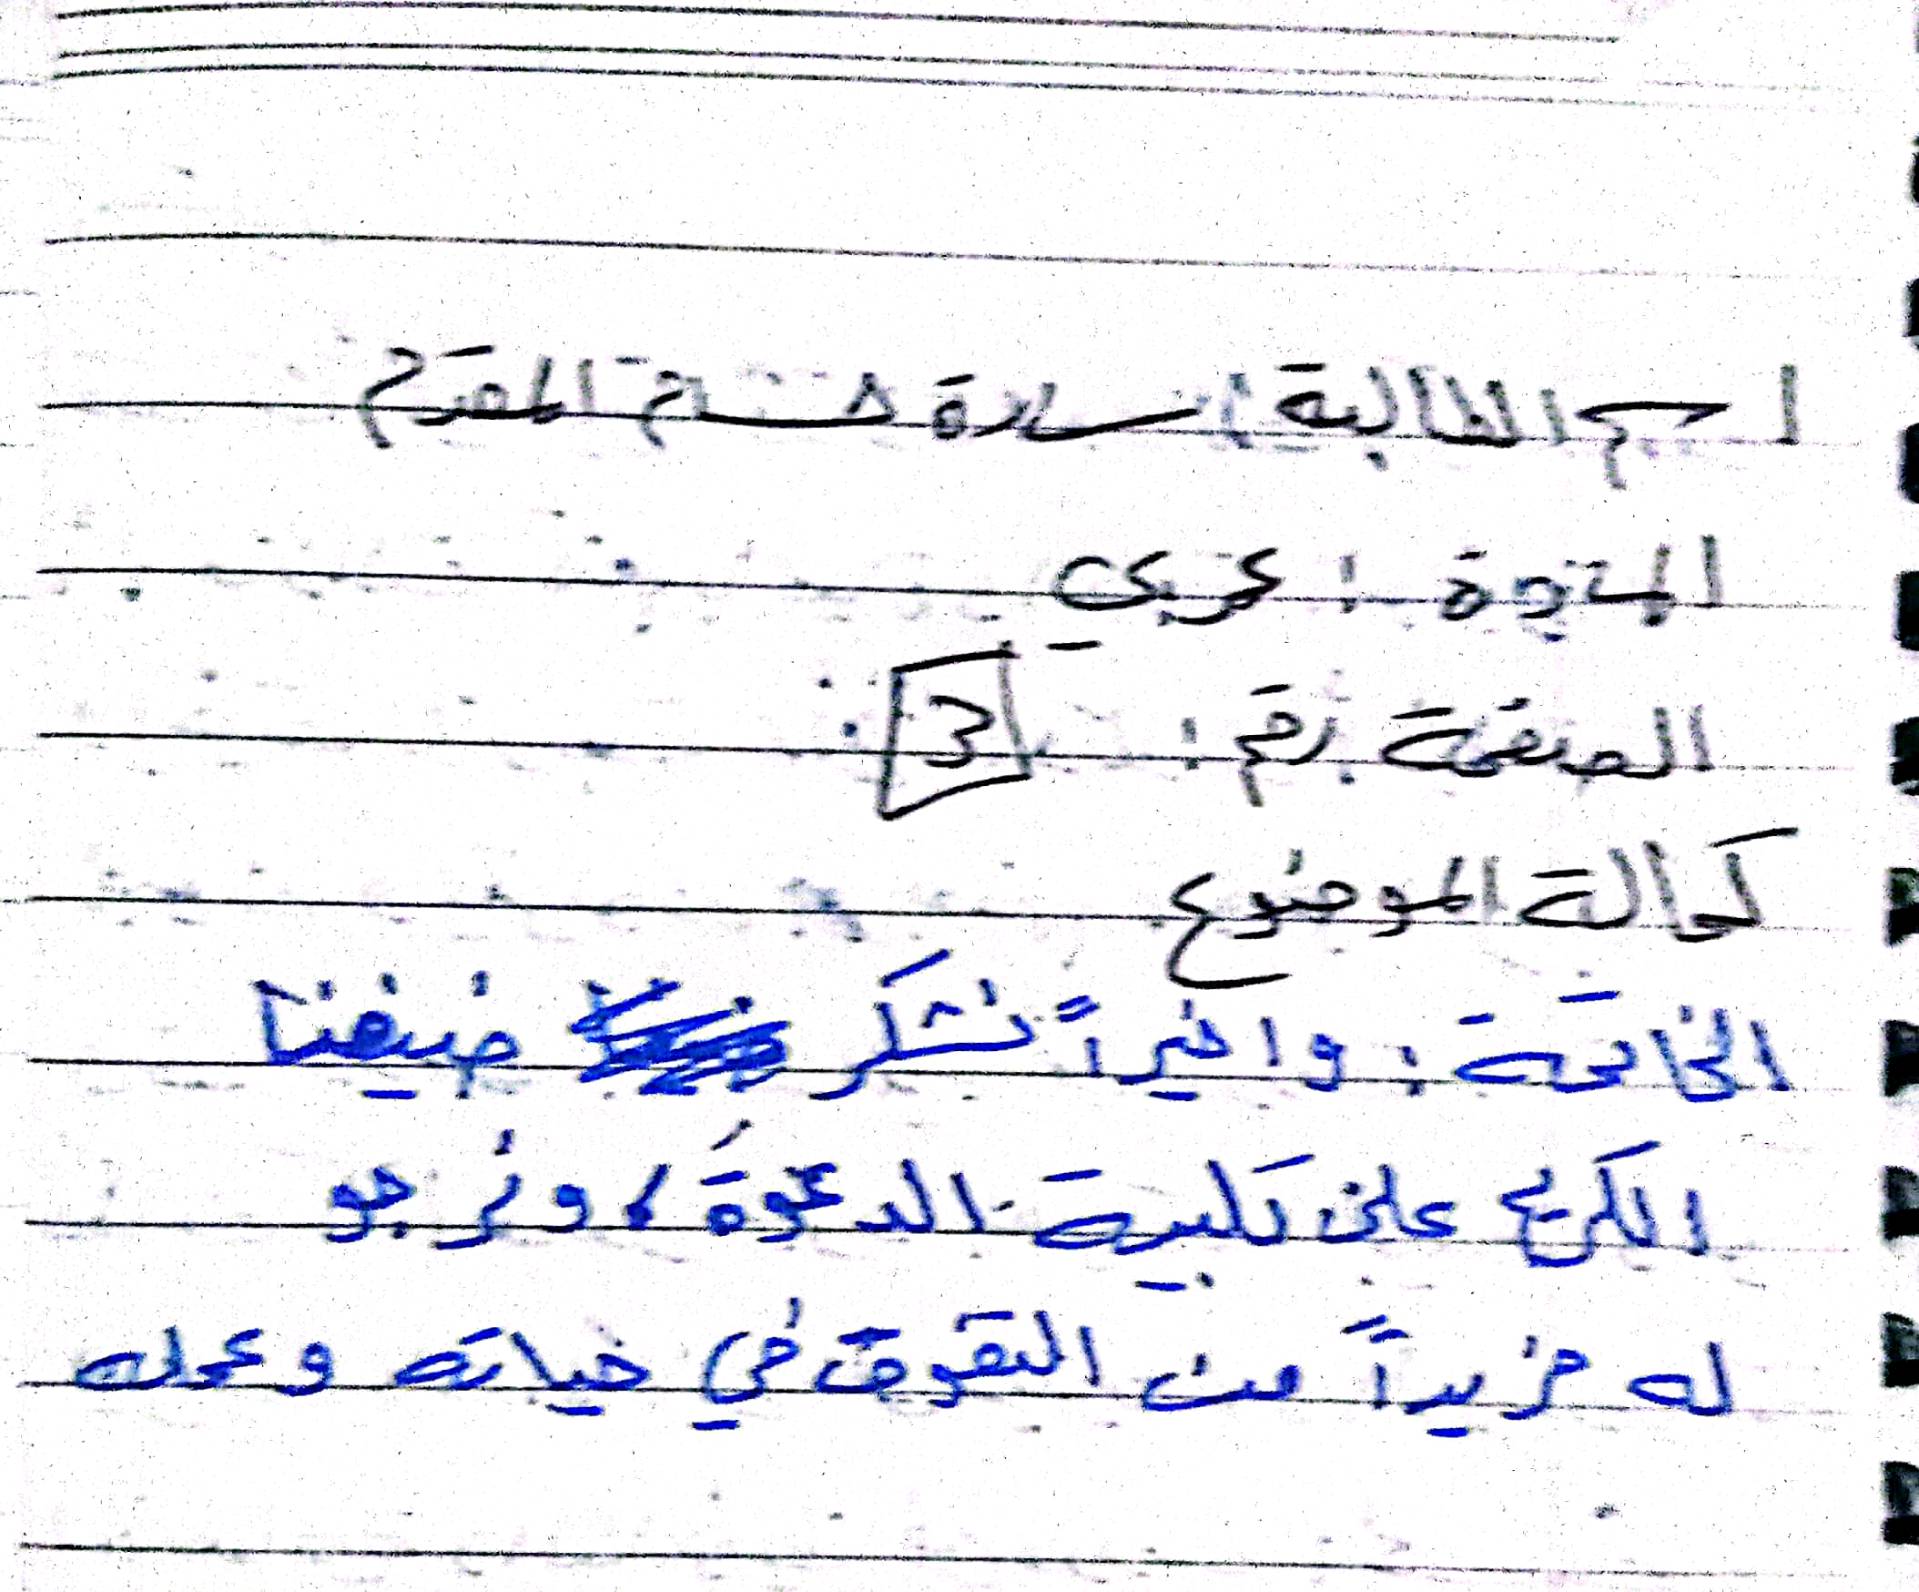 اسم الطالبة : سارة المقدم
المادة : عربي
الصفحة رقم : 3
كمالة الموضوع
الخاتمة : واخيراً نشكر ضيفنا
الكريم على تلبية الدعوة ، ونرجو
له مزيداً من التفوق في حياته وعمله